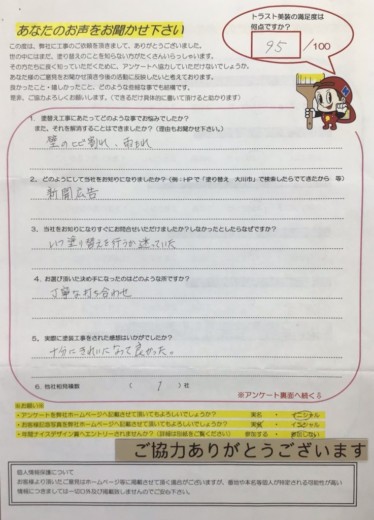 あなたのお声をお聞かせ下さい
トラスト美装の満足度は
何点ですか?
95 /100
この度は、弊社に工事のご依頼を頂きまして、ありがとうございました。
世の中にはまだ、塗り替えのことを知らない方がたくさんいらっしゃいます。
その方たちに良く知っていただくために、アンケートへ協力していただけないでしょうか。
あなた様のご意見をお聞かせ頂き今後の活動に反映したいと考えております。
良かったこと・嬉しかったこと、どのような些細な事でも結構です。
是非、ご協力よろしくお願いします。(できるだけ具体的に書いて頂けると助かります)
1. 塗替え工事にあたってどのような事でお悩みでしたか?
また、それを解消することはできましたか?(理由もお聞かせ下さい。)
壁のヒビ割れ、
2. どのようにして当社をお知りになりましたか?(例:HPで「塗り替え 大川市」で検索したらでてきたから 等)
新聞広告
3. 当社をお知りになりすぐにお問合せいただけましたか?しなかったとしたらなぜですか?
いつ塗り替えを行うか迷っていた
4. お選び頂いた決め手になったのはどのような所ですか?
丁寧な打ち合わせ
5. 実際に塗装工事をされた感想はいかがでしたか?
十分にきれいになって良かった。
6. 他社相見積数 ( 1 ) 社
※アンケート裏面へ続く
※お願い※
・アンケートを弊社ホームページへ記載させて頂いてもよろしいでしょうか? 実名 ・ イニシャル
・お客様記念写真を弊社ホームページへ記載させて頂いてもよろしいでしょうか? 実名 ・ イニシャル
・年間ナイスデザイン賞へエントリーされませんか?(詳細は別紙をご覧ください) 参加する ・ 参加しない
ご協力ありがとうございます
個人情報保護について
お客様より頂いたご意見はホームページ等に掲載させて頂く場合がございますが、番地や本名等個人が特定される可能性が高い
情報につきましては一切口外及び掲載致しませんのでご安心下さい。